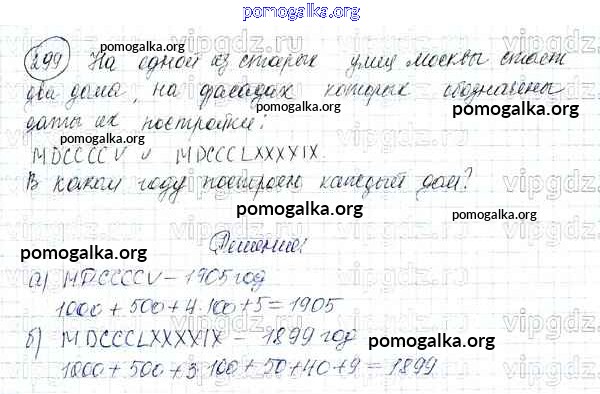 pomogalka.org
299 На одной из старых улиц москвы стоят
два дома, на фасадах которых обозначены
даты их постройки:
MDCCCCV и MDCCCLXXXXIX.
В каком году построен каждый дом?
pomogalka.org
pomogalka.org
pomogalka.org
pomogalka.org
pomogalka.org
Решение:
pomogalka.org
pomogalka.org
а) MDCCCCV – 1905 год
1000 + 500 + 4·100 + 5 = 1905
б) MDCCCLXXXXIX – 1899 год
pomogalka.org
1000 + 500 + 3·100 + 50 + 40 + 9 = 1899